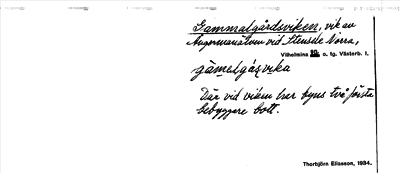 Gammalgårdsviken, vik av
Ångermanälven vid Stensele Norra,
Vilhelmina sn. o. tg. Västerb. l.
gàmelgåsvika
Där vid viken har byns två första
bebyggare bott.
Thorbjörn Eliasson, 1934.